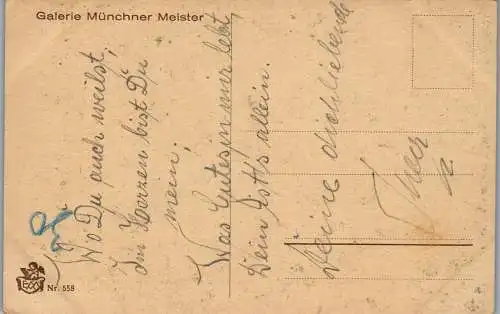 Galerie Münchner Meister
Wo Du auch weilst,
Im Herzen bist Du
mein;
Was Gutes in mir lebt,
Dein ist's allein.
Deine dichliebende
Nr. 558